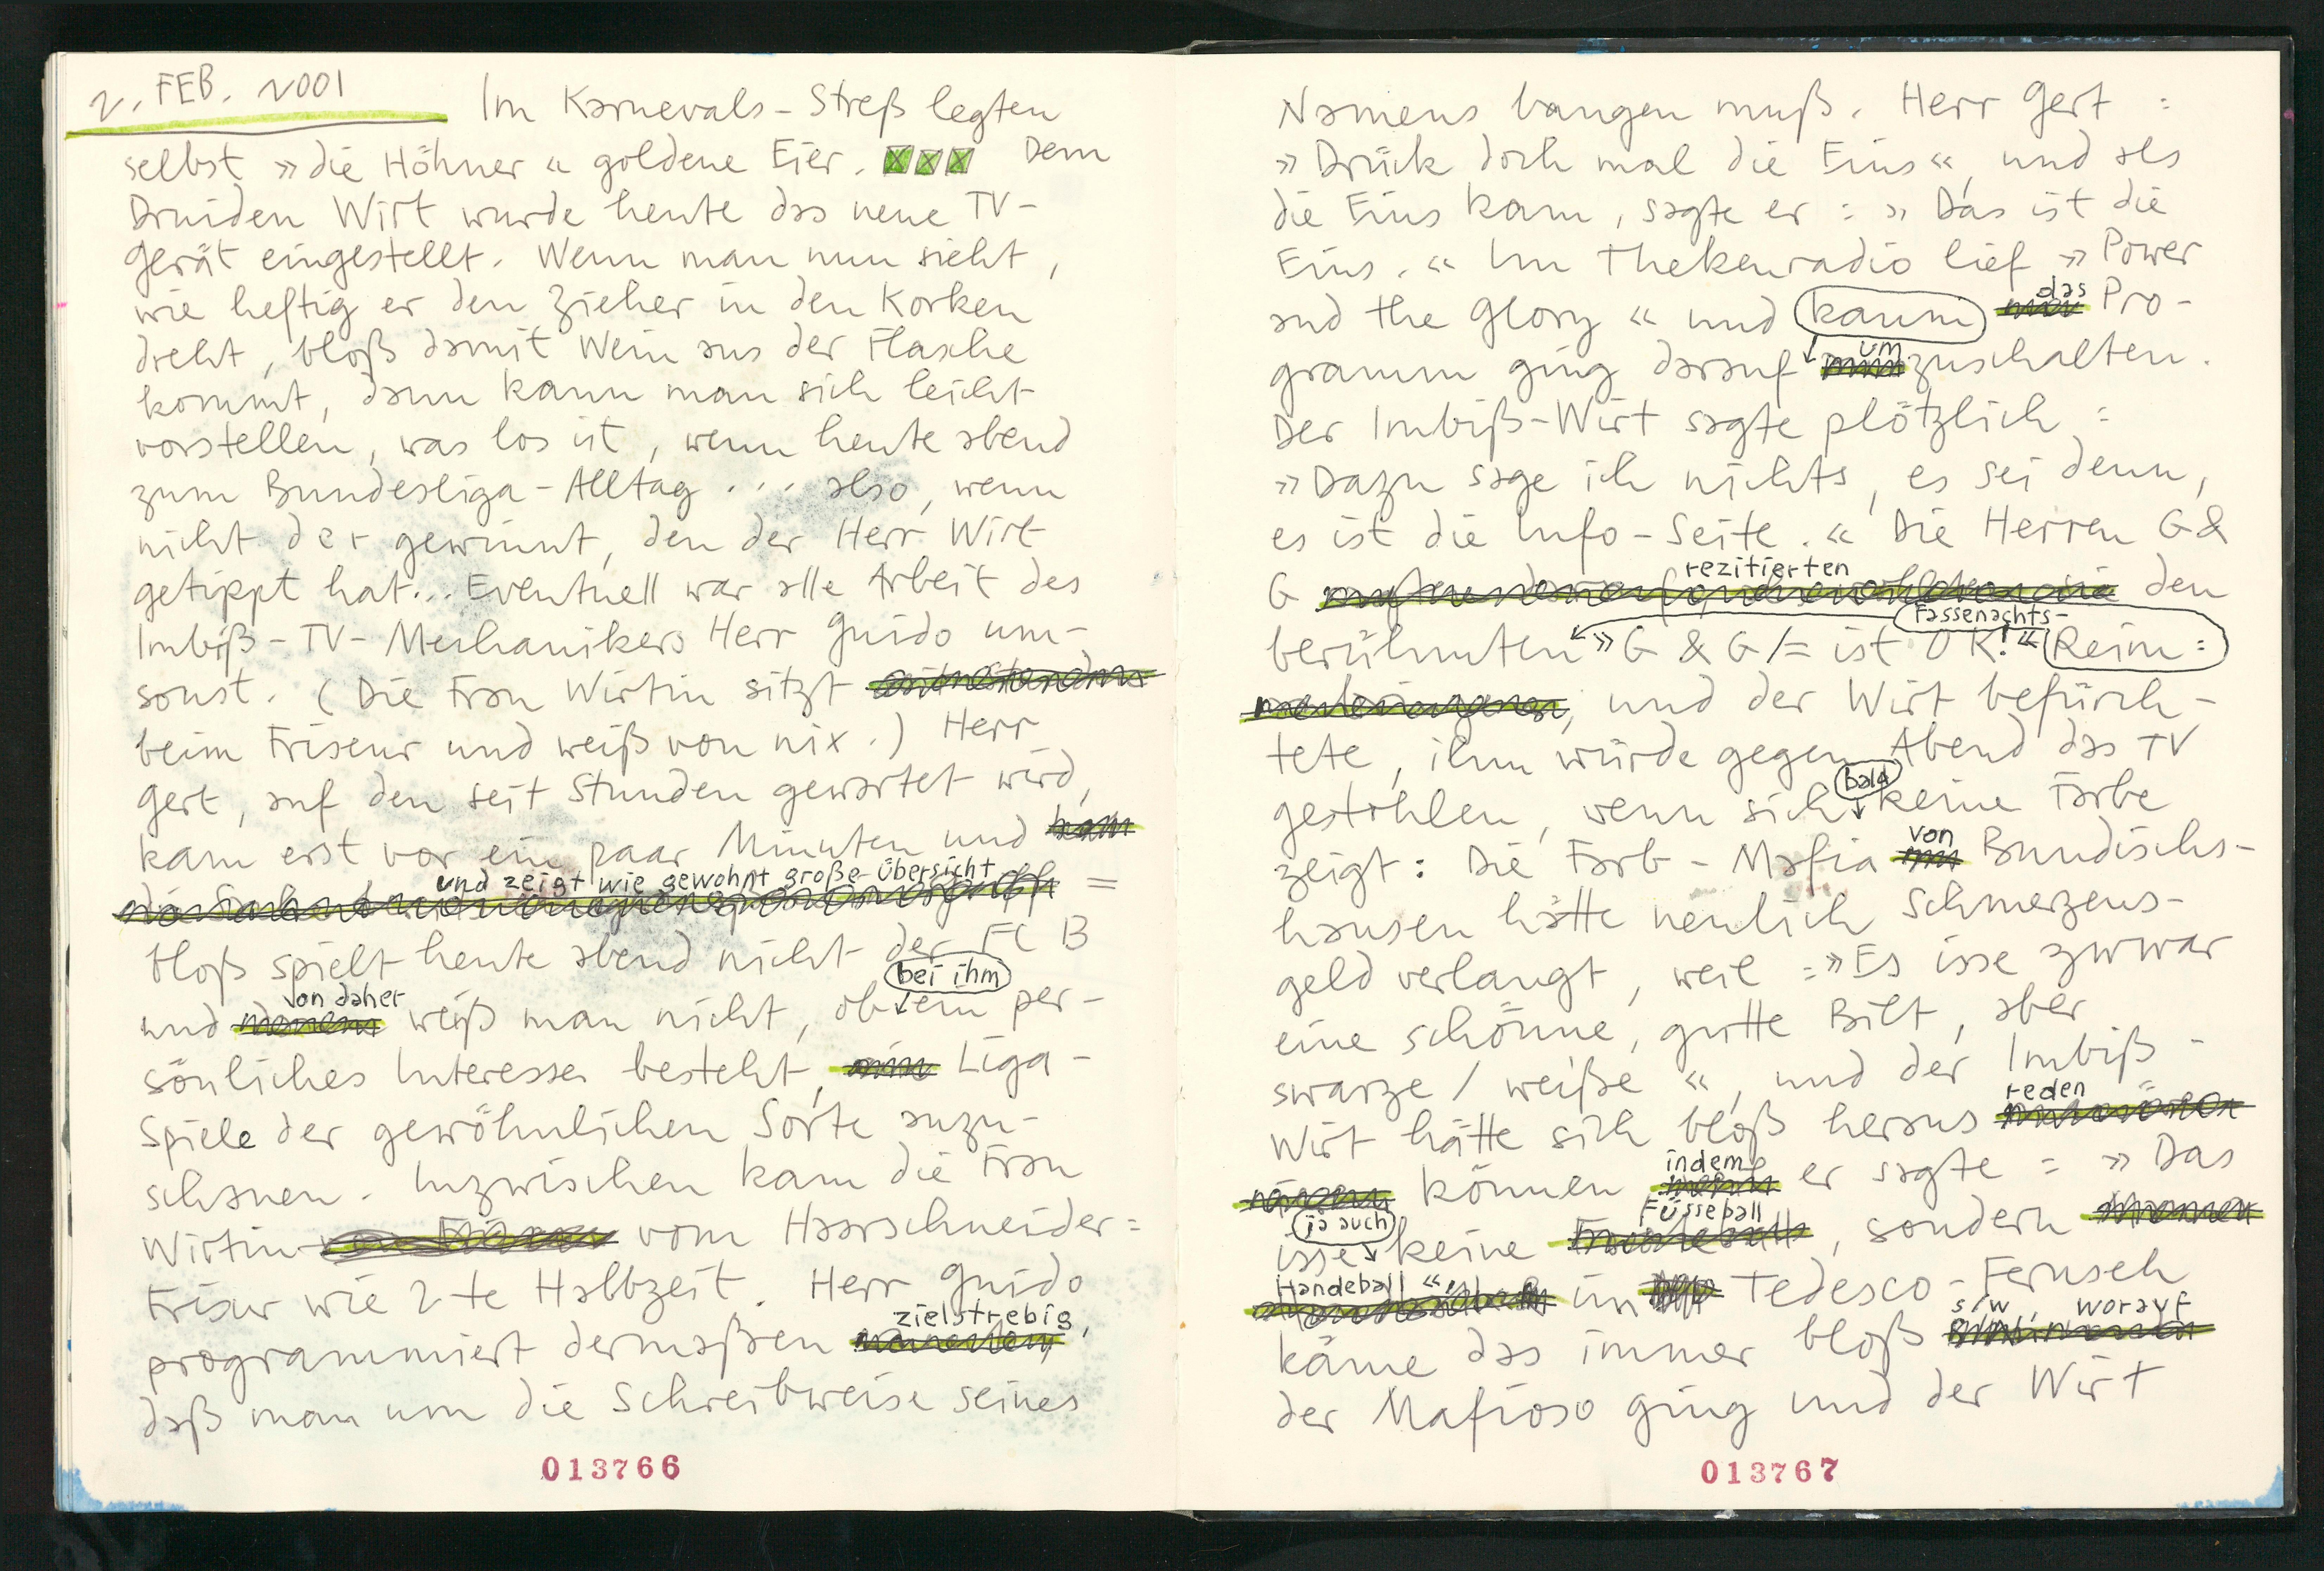 2. FEB. 2001 Im Karnevals-Streß legten
selbst »die Höhner« goldene Eier. XXX Dem
Druiden Wirt wurde heute das neue TV-
Gerät eingestellt. Wenn man nun sieht,
wie heftig er den Zieher in den Korken
dreht, bloß damit Wein aus der Flasche
kommt, dann kann man sich leicht
vorstellen, was los ist, wenn heute abend
zum Bundesliga-Alltag ... also, wenn
nicht der gewinnt, den der Herr Wirt
getippt hat... Eventuell war alle Arbeit des
Imbiß-TV-Mechanikers Herr Guido um-
sonst. (Die Frau Wirtin sitzt
beim Friseur und weiß von nix.) Herr
Gert, auf den seit Stunden gewartet wird,
kam erst vor ein paar Minuten und
und zeigt wie gewohnt große Übersicht =
bloß spielt heute abend nicht der FC B
bei ihm
von daher
und weiß man nicht, ob ein per-
sönliches Interesse besteht, Liga-
Spiele der gewöhnlichen Sorte anzu-
schauen. Inzwischen kam die Frau
Wirtin vom Haarschneider=
Friseur wie 2-te Halbzeit. Herr Guido
zielstrebig,
programmiert dermaßen
daß man um die Schreibweise seines
013766
Namens bangen muß. Herr Gert :
»Drück doch mal die Eins«, und als
die Eins kam, sagte er : »Das ist die
Eins.« Im Thekenradio lief »Power
das
and the Glory« und kaum Pro-
um
gramm ging darauf zuschalten.
Der Imbiß-Wirt sagte plötzlich :
»Dazu sage ich nichts, es sei denn,
es ist die Info-Seite.« Die Herren G&
rezitierten
G den
Fassenachts-
berühmten »G & G /= ist OK!« Reim:
, und der Wirt befürch-
tete, ihm würde gegen Abend das TV
bald
gestohlen, wenn sich keine Farbe
von
zeigt: Die Farb-Mafia Bundischs-
hausen hätte neulich Schmerzens-
geld verlangt, weil :»Es isse zwwar
eine schönne, gutte Bilt, aber
swarze / weiße«, und der Imbiß-
reden
Wirt hätte sich bloß heraus
indem
können er sagte = »Das
ja auch Füsseball
isse keine , sondern
Händeball«, im Tedesco-Fernseh
s/w, worauf
käme das immer bloß
der Mafioso ging und der Wirt
013767